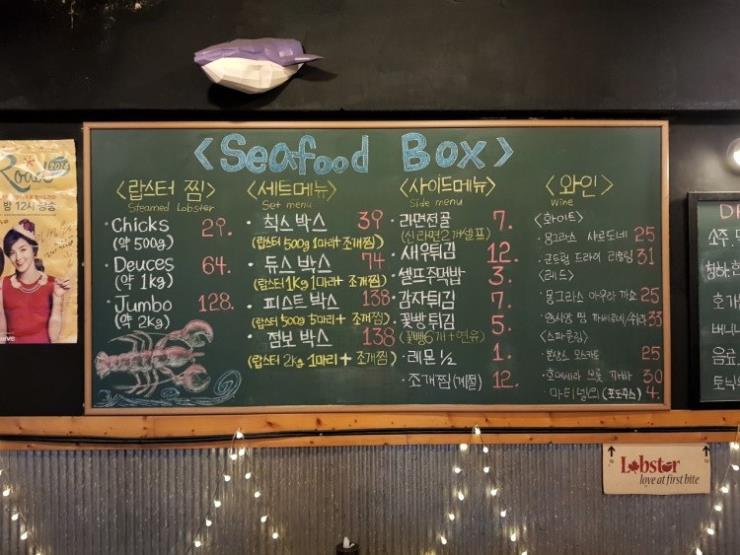 <Seafood Box>
<랍스터 찜>
Steamed Lobster
· Chicks 29.
(약 500g)
· Deuces 64.
(약 1kg)
· Jumbo 128.
(약 2kg)
<세트메뉴>
Set menu
· 칙스박스 39
(랍스터 500g 1마리 + 조개찜)
· 듀스 박스 74
(랍스터 1kg 1마리 + 조개찜)
· 피스트 박스 138
(랍스터 500g 5마리 + 조개찜)
· 점보 박스 138
(랍스터 2kg 1마리 + 조개찜)
<사이드메뉴>
Side menu
· 라면전골 7.
(신라면2개셀프)
· 새우튀김 12.
· 셀프주먹밥 3.
· 감자튀김 7.
· 꽃빵튀김 5.
(꽃빵6개+연유)
· 레몬 1/2 1.
· 조개찜(계절) 12.
<와인>
Wine
<화이트>
· 몽그라스 샤르도네 25
드라이 리슬링 31
<레드>
· 몽그라스 25
33
<스파클링>
모스카토 25
30
마티넬리(포도주스) 4.
밤 12시 방송
소주,
음료,
Lobster
love at first bite